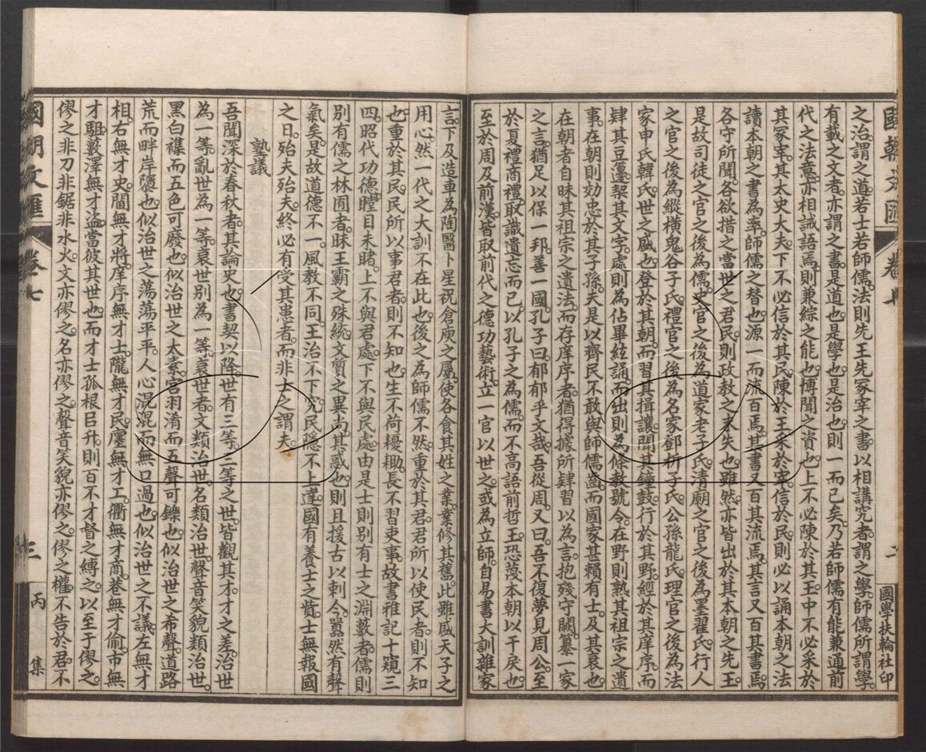 國朝文匯
卷七
二
國學扶輪社印
之治。謂之道。若士若師儒。法則先王先冢宰之書以相講究者。謂之學。師儒所謂學。
有載之文者。亦謂之書。是道也。是學也。是治也。則一而已矣。乃若師儒有能兼通前
代之法意。亦相誡語焉。則兼綜之能也。博聞之資也。上不必陳於其王。中不必采於
其冢宰。其太史大夫。下不必信於其民。陳於王。采於宰。信於民。則必以誦本朝之法
讀本朝之書為率。師儒之替也。源一而流百焉。其書又百其流焉。其言又百其書焉。
各守所聞。各欲措之當世之君民。則政教之末失也。雖然。亦皆出於其本朝之先王。
是故司徒之官之後為儒。史官之後為道家老子氏。清廟之官之後為墨翟氏。行人
之官之後為縱橫鬼谷子氏。禮官之後為名家鄧析子氏公孫龍氏。理官之後為法
家申氏韓氏。世之盛也。登於其朝。而習其揖讓。聞其鐘鼓。行於其野。經於其庠序。而
肆其豆籩。契其文字。處則為佔畢絃誦。而出則為條教號令。在野則熟其祖宗之遺
事。在朝則効忠於其子孫。夫是以齊民不敢與師儒齒。而國家甚賴有士。及其衰也。
在朝者自昧其祖宗之遺法。而在庠序者。猶得據所肄習以為言。抱殘守闕。纂一家
之言。猶足以保一邦。善一國。孔子曰。郁郁乎文哉。吾從周。又曰。吾不復夢見周公。至
於夏禮商禮。取識遺忘而已。以孔子之為儒。而不高語前哲王。恐蔑本朝以干戾也。
至於周及前漢。皆取前代之德功藝術。立一官以世之。或為立師。自易書大訓雜家
言。下及造車為陶醫卜星祝倉庾之屬。使各食其姓之業。業修其舊。此雖盛天子之
用心。然一代之大訓不在此也。後之為師儒不然。重於其君。君所以使民者。則不知
也。重於其民。民所以事君者。則不知也。生不荷耰鋤。長不習吏事。故書雅記。十窺三
四。昭代功德。瞠目未睹。上不與君處。下不與民處。由是士則別有士之淵藪者。儒則
別有儒之林囿者。昧王霸之殊統。文質之異尚。其惑也。則且援古以刺今。囂然有聲
氣矣。是故道德不一。風教不同。王治不下究。民隱不上達。國有養士之貲。士無報國
之日。殆夫殆夫。終必有受其患者。而非士之謂夫。
塾議
吾聞深於春秋者。其論史也。書契以降。世有三等。三等之世。皆觀其才。才之差。治世
為一等。亂世為一等。衰世別為一等。衰世者。文類治世。名類治世。聲音笑貌類治世。
黑白襍而五色可廢也。似治世之太素。宮羽淆而五聲可鑠也。似治世之希聲。道路
荒而畔岸隳也。似治世之蕩蕩平平。人心混混而無口過也。似治世之不議。左無才
相。右無才史。閫無才將。庠序無才士。隴無才民。廛無才工。衢無才商。巷無才偷。市無
才駔。藪澤無才盜。當彼其世也。而才士孤根呂升。則百不才督之縛之。以至于僇之。
僇之非刀非鋸非水火。文亦僇之。名亦僇之。聲音笑貌亦僇之。僇之權不告於君。不
國朝文匯
卷七
三
丙集